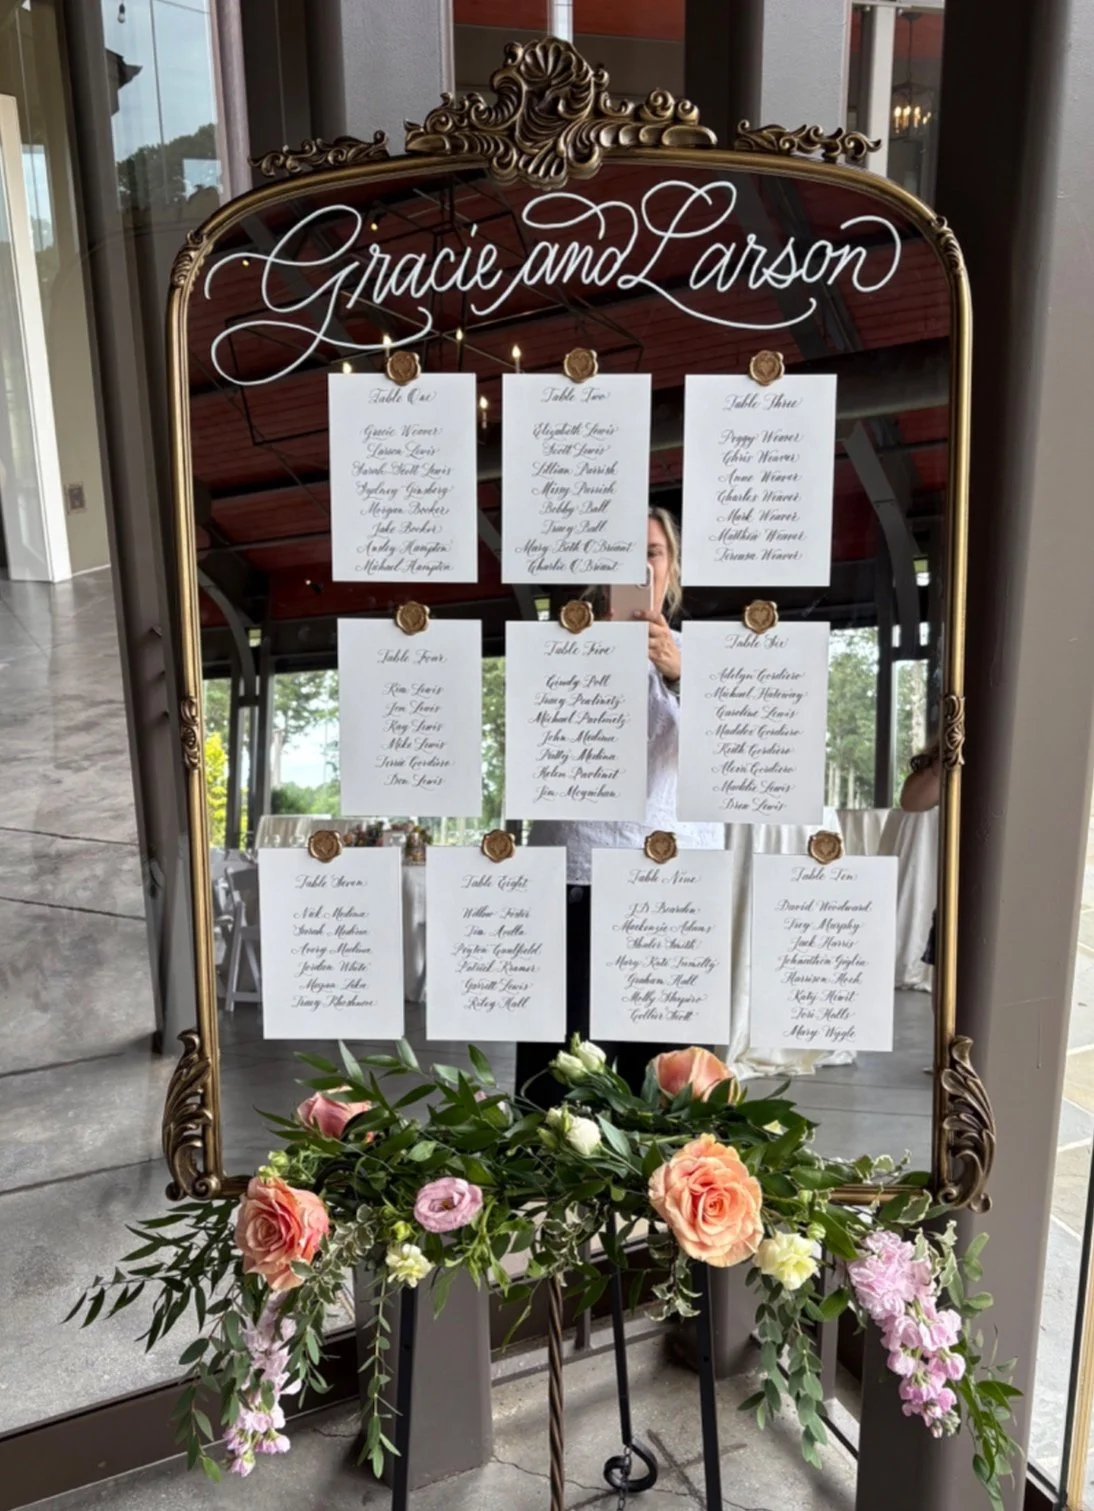 Gracie and Larson
Table One
Gracie Weaver
Larson Lewis
Sarah Scott Lewis
Sydney Ginsberg
Morgan Booker
Jake Booker
Ansley Hampton
Michael Hampton
Table Two
Elizabeth Lewis
Scott Lewis
Lillian Parrish
Missy Parrish
Bobby Ball
Tracy Ball
Mary Beth O'Briant
Charlie O'Briant
Table Three
Peggy Weaver
Chris Weaver
Anne Weaver
Charles Weaver
Mark Weaver
Matthew Weaver
Teressa Weaver
Table Four
Kim Lewis
Jen Lewis
Kay Lewis
Mike Lewis
Terrie Cordiero
Don Lewis
Table Five
Cindy Poll
Tracy
Michael
John Medina
Patty Medina
Helen
Jim Moynihan
Table Six
Adelyn Cordiero
Michael Hataway
Caroline Lewis
Maddox Cordiero
Keith Cordiero
Alexi Cordiero
Maddie Lewis
Drew Lewis
Table Seven
Nick Medina
Sarah Medina
Avery Medina
Jordan White
Megan Lake
Tracy
Table Eight
Willow Foster
Tia
Peyton Cantfield
Patrick Kramer
Garrett Lewis
Riley Hall
Table Nine
J.D. Bearden
Mackenzie Adams
Shaler Smith
Mary Kate Tumelty
Graham Hall
Molly Shapiro
Collier Scott
Table Ten
David Woodward
Troy Murphy
Jack Harris
Johnathon Giglia
Harrison Hoch
Katy Hewit
Tori Halls
Mary Wiggle